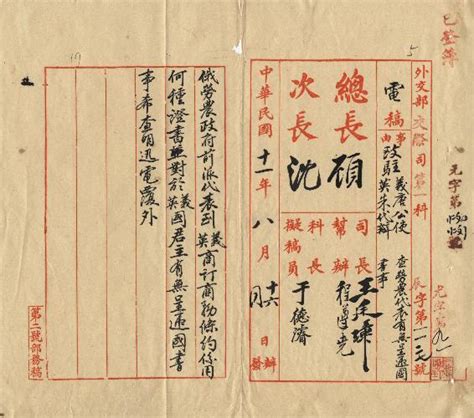 已登簿
外交部交際司第一科
電稿
事由
致駐義唐公使
英朱代辦
查勞農代表有無呈遞國書事
辰字第一一元號
元字第
總長顧
次長沈
司長王廷璋
幫辦程遵堯
科長
擬稿員于德濬
中華民國十一年八月十六日
月 日
辦
發
俄勞農政府前派代表到義英商訂商務條約係用
何種證書並對於義英國君主有無呈遞國書
事希查明迅電覆外
第二號部務稿